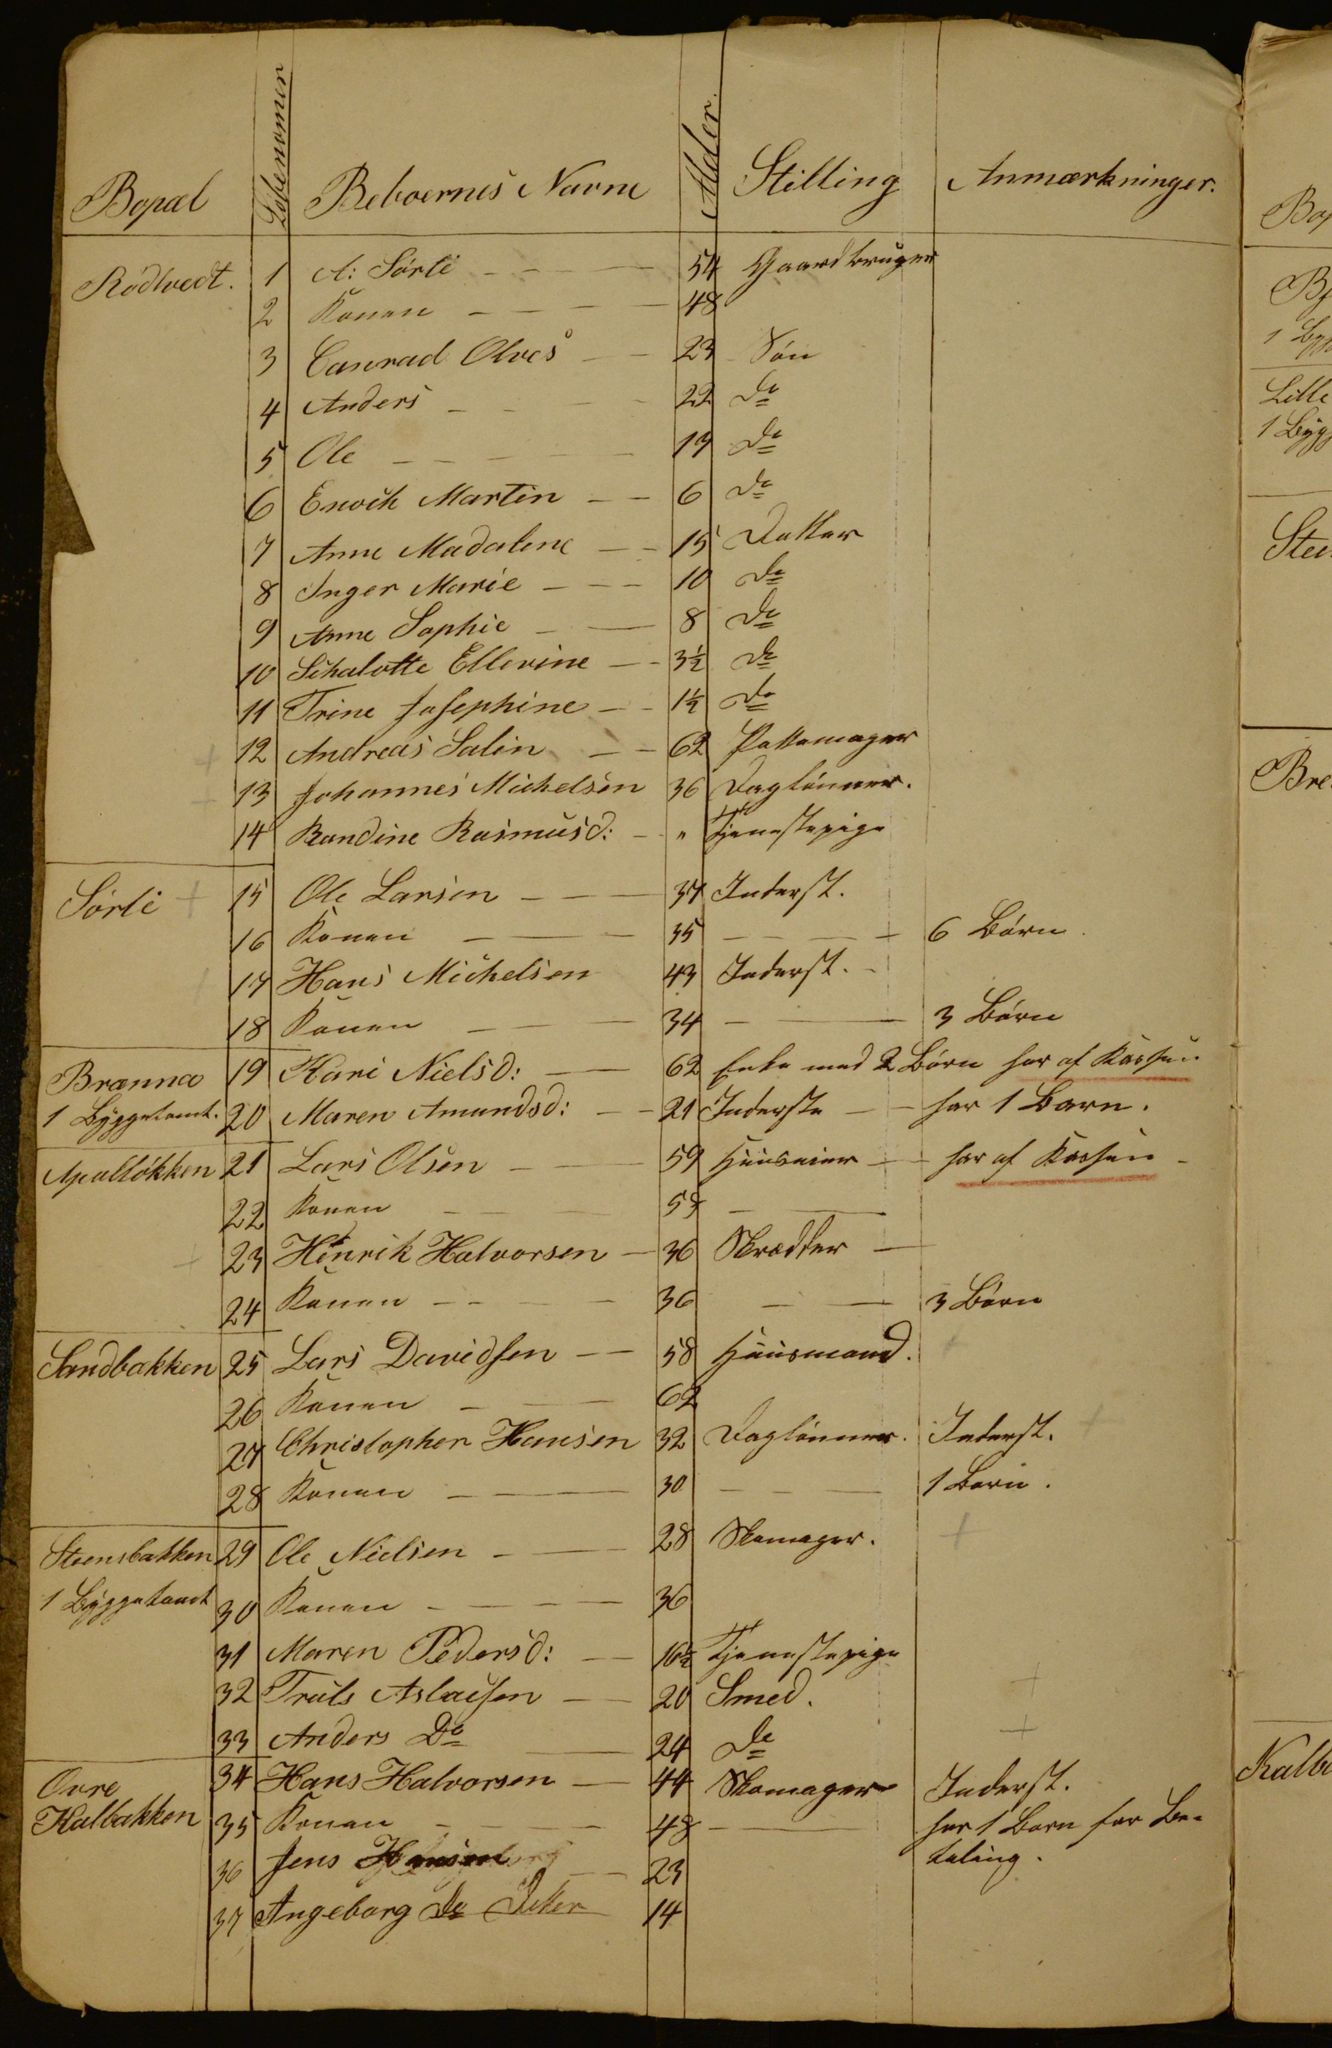 Bopæl Löbenomer Beboernes Navne Alder. Stilling Anmærkninger.
Rodtvedt. 1 A: Sörli 54 Gaardbruger
2 Konen 48
3 Conrad Olves 23 Sön
4 Anders 22 Do
5 Ole 13 Do
6 Enoch Martin 6 Do
7 Anne Madalene 15 Datter
8 Inger Marie 10 Do
9 Anne Sophie 8 Do
10 Schalotte Ellevine 3½ Do
11 Trine Josephine 1½ Do
12 Andreas Salin 62 Pottemager
13 Johannes Michelsen 36 Daglönner.
14 Randine Rasmusd: " Tjenestepige
Sörli 15 Ole Larsen 37 Inderst.
16 Konen 35 6 Börn
17 Hans Michelsen 43 Inderst.
18 Konen 34 3 Börn
Brænna 19 Kari Nielsd: 62 Enke med 2 Börn har af Kassen
1 Byggetomt. 20 Maren Amundsd: 21 Inderste har 1 Barn.
Apallökken 21 Lars Olsen 59 Huuseier har af Kassen
22 Konen 58
23 Henrik Halvorsen 36 Skrædder
24 Konen 36 3 Börn
Sandbakken 25 Lars Davidsen 58 Huusmand.
26 Konen 62
27 Christopher Hansen 32 Daglönner. Inderst.
28 Konen 30 1 Barn.
Steensbakken 29 Ole Nielsen 28 Skomager.
1 Byggetomt 30 Konen 36
31 Maren Pedersd: 16½ Tjenestepige
32 Truls Aslacsen 20 Smed.
33 Anders Do 24 Do
Ovre 34 Hans Halvorsen 44 Skomager Inderst.
Kalbakken 35 Konen 48 har 1 Barn for Be-
36 Jens Hansen 23 taling.
37 Ingeborg Do Deter 14
Bop
1 Byg
Lille
1 Byg
Stee
Bre
Kalb